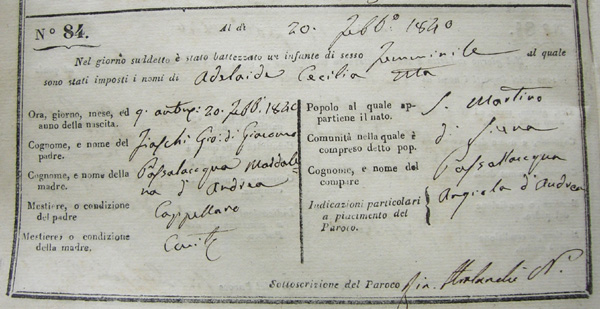 N.º 84. Al dì 20. Febb.º 1840
Nel giorno suddetto è stato battezzato un infante di sesso femminile al quale
sono stati imposti i nomi di Adelaide Cecilia
Ora, giorno, mese, ed
anno della nascita. 9. 20. Febb.º 1840
Cognome, e nome del
padre. Gio: di Giacomo
Cognome, e nome della
madre. Passalacqua Maddale-
na d' Andrea
Mestiere, o condizione
del padre Cappellaro
Mestiere, o condizione
della madre.
Popolo al quale ap-
partiene il nato. S. Martino
Comunità nella quale è
compreso detto pop. di Siena
Cognome, e nome del
compare Passalacqua
Angiola d' Andrea
Indicazioni particolari
a piacimento del
Paroco.
Sottoscrizione del Paroco